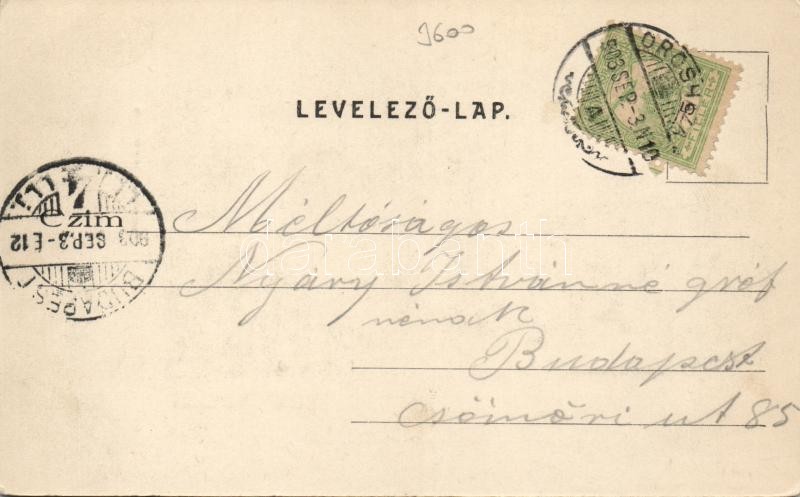 3600
OROSHÁZA
903 SEP.-3 N10
A
5
LEVELEZŐ-LAP.
Czim
903 SEP.3-E12
BUDAPEST
Méltóságos
Nyáry Istvánné gróf
nénak
Budapest
Csömöri ut 85
darabanth